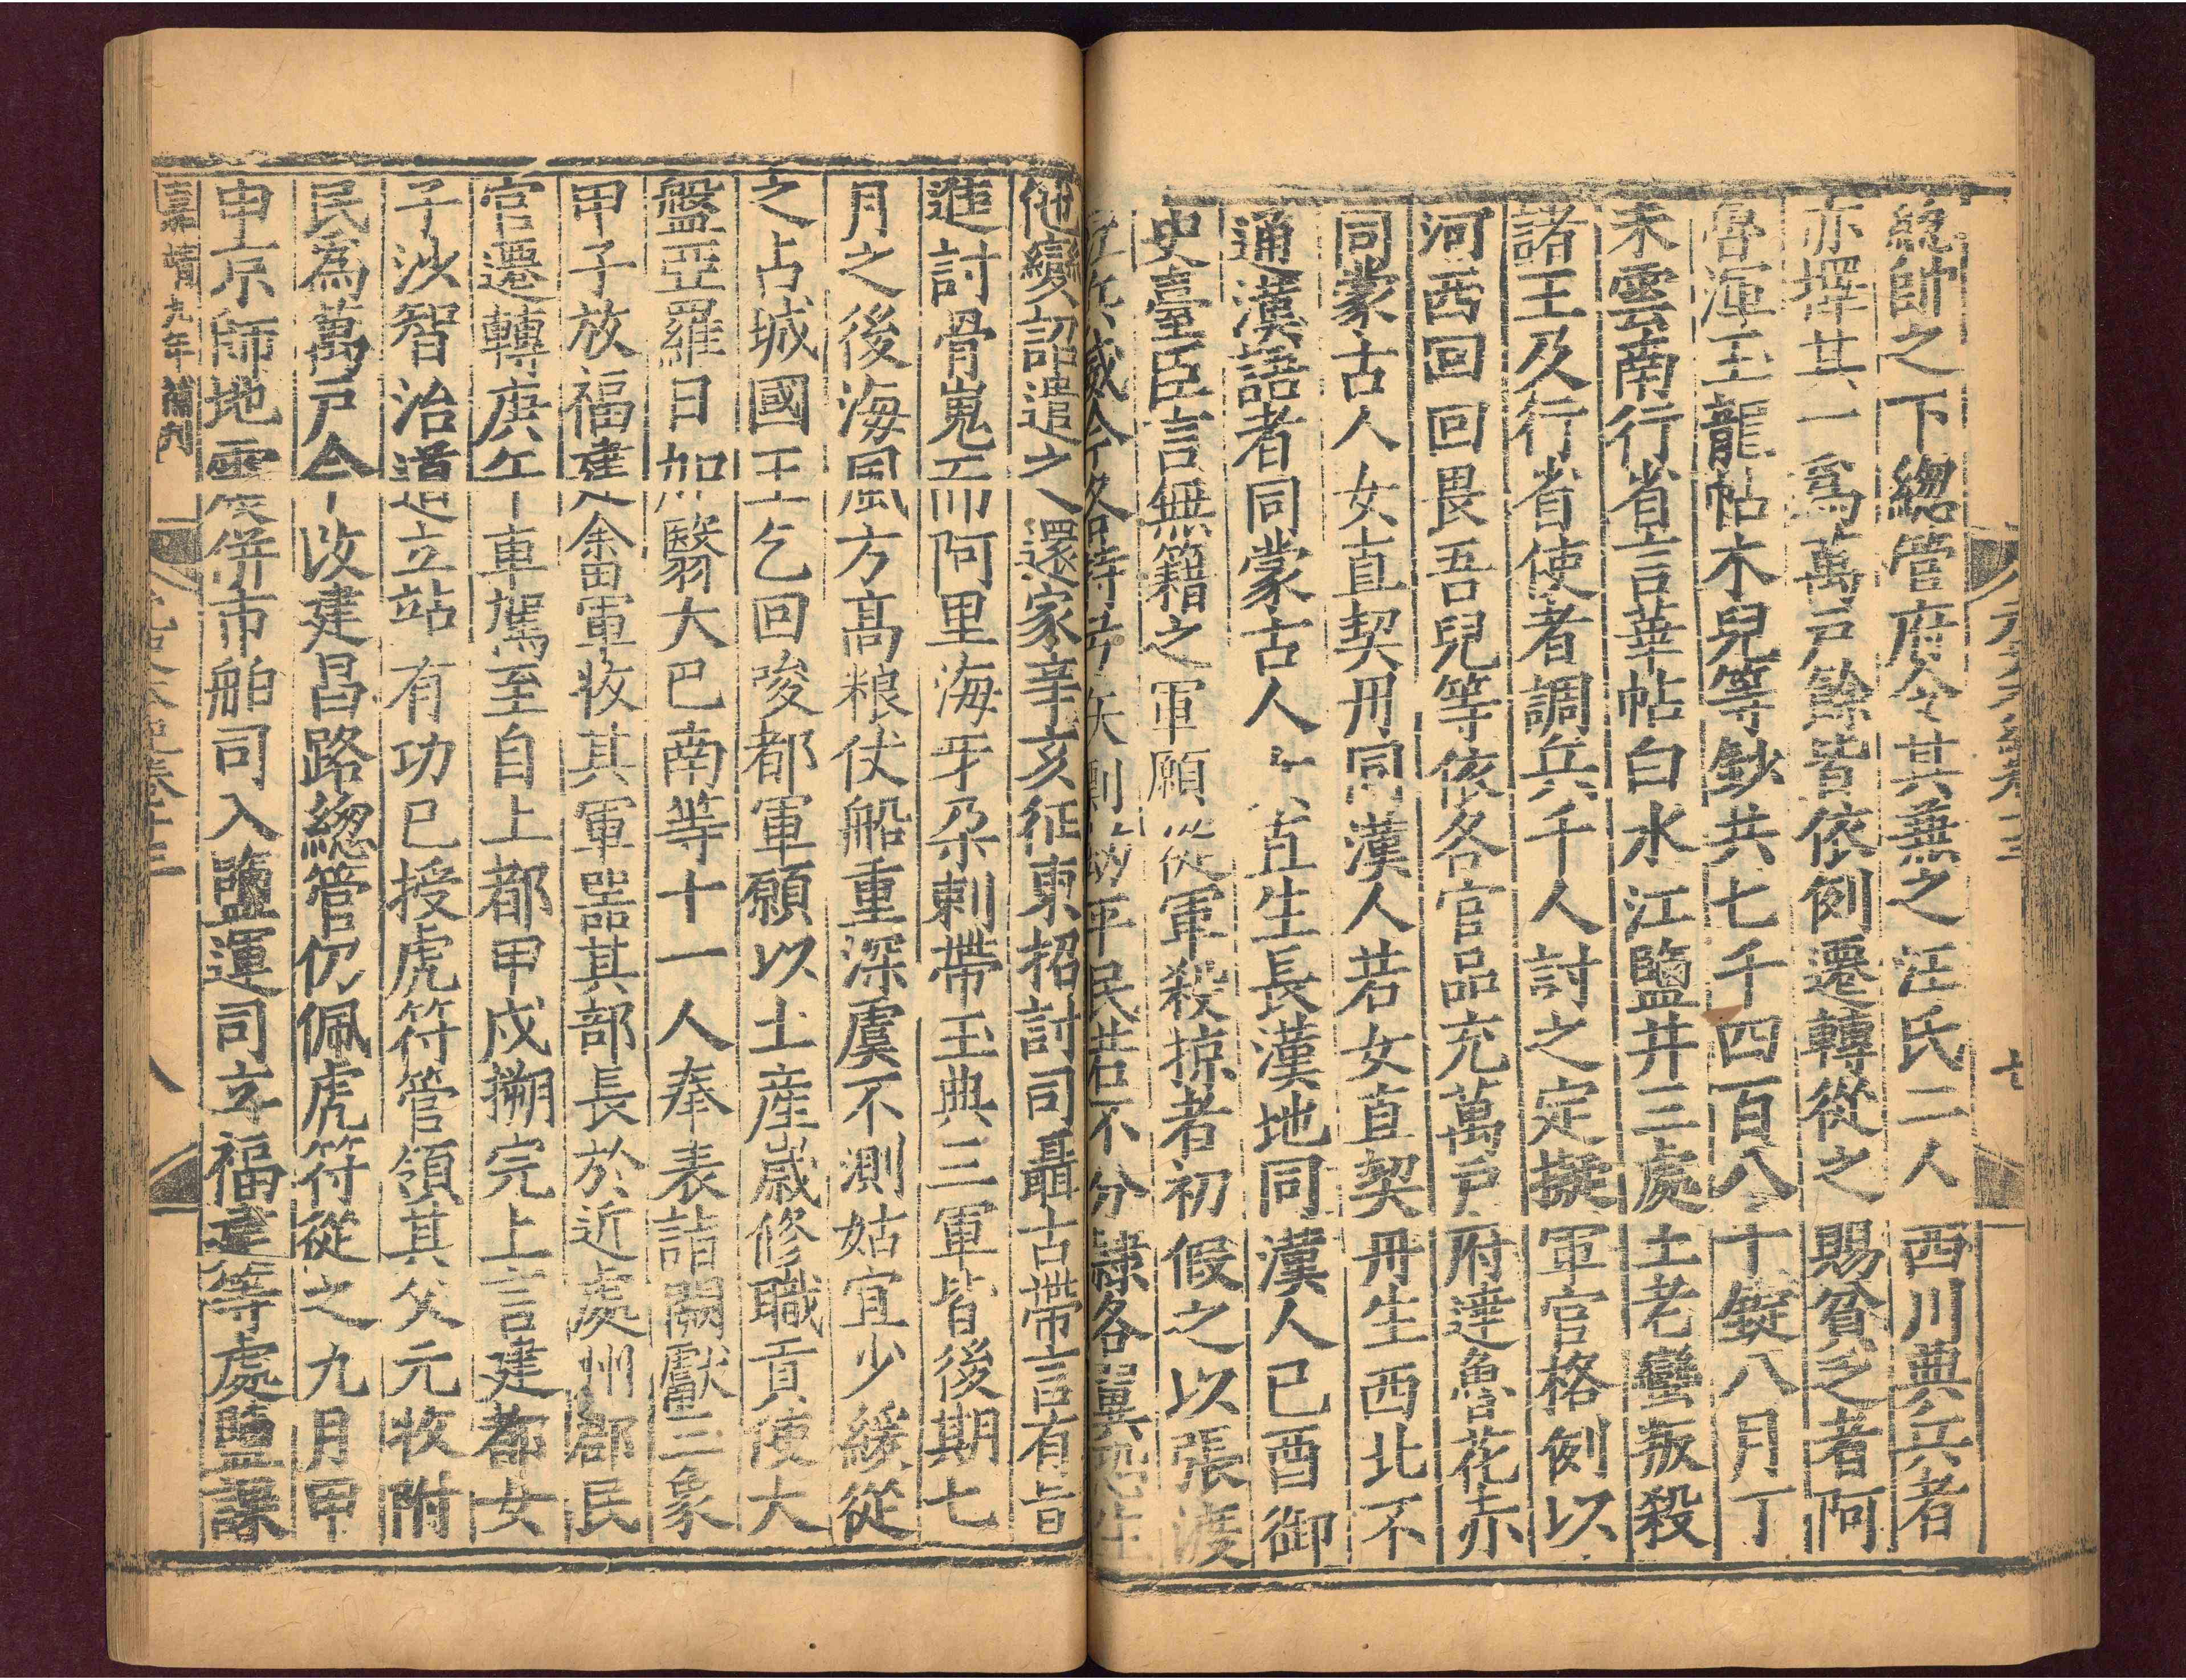 總帥之下總管府今其兼之汪氏二人西川典兵者
亦擇其一爲萬戸餘皆依例遷轉從之賜貧乏者阿
魯渾玉龍帖木兒等鈔共七千四百八十錠八月丁
未雲南行省言華帖白水江鹽井三處土老蠻叛殺
諸王及行省使者調兵千人討之定擬軍官格例以
河西回回畏吾兒等依各官品充萬戸府達魯花赤
同蒙古人女直契丹同漢人若女直契丹生西北不
通漢語者同蒙古人女直生長漢地同漢人己酉御
史臺臣言無籍之軍願從軍殺掠者初假之以張渡
江兵威今各持弓矢剽劫平民若不分隸各翼恐生
他變詔遣之還家辛亥征東招討司聶古帶言有旨
進討骨嵬而阿里海牙朶剌帶玉典三軍皆後期七
月之後海風方髙粮仗船重深虞不測姑宜少緩從
之占城國王乞回唆都軍願以土産歳修職貢使大
盤亞羅日加翳大巴南等十一人奉表詣闕獻三象
甲子放福建畬軍收其軍器其部長於近處州郡民
官遷轉庚午車駕至自上都甲戌搠完上言建都女
子沙智治道立站有功已授虎符管領其父元收附
民爲萬戸今改建昌路總管仍佩虎符從之九月甲
申京師地震併市舶司入鹽運司立福建等處鹽課
嘉靖九年補刊